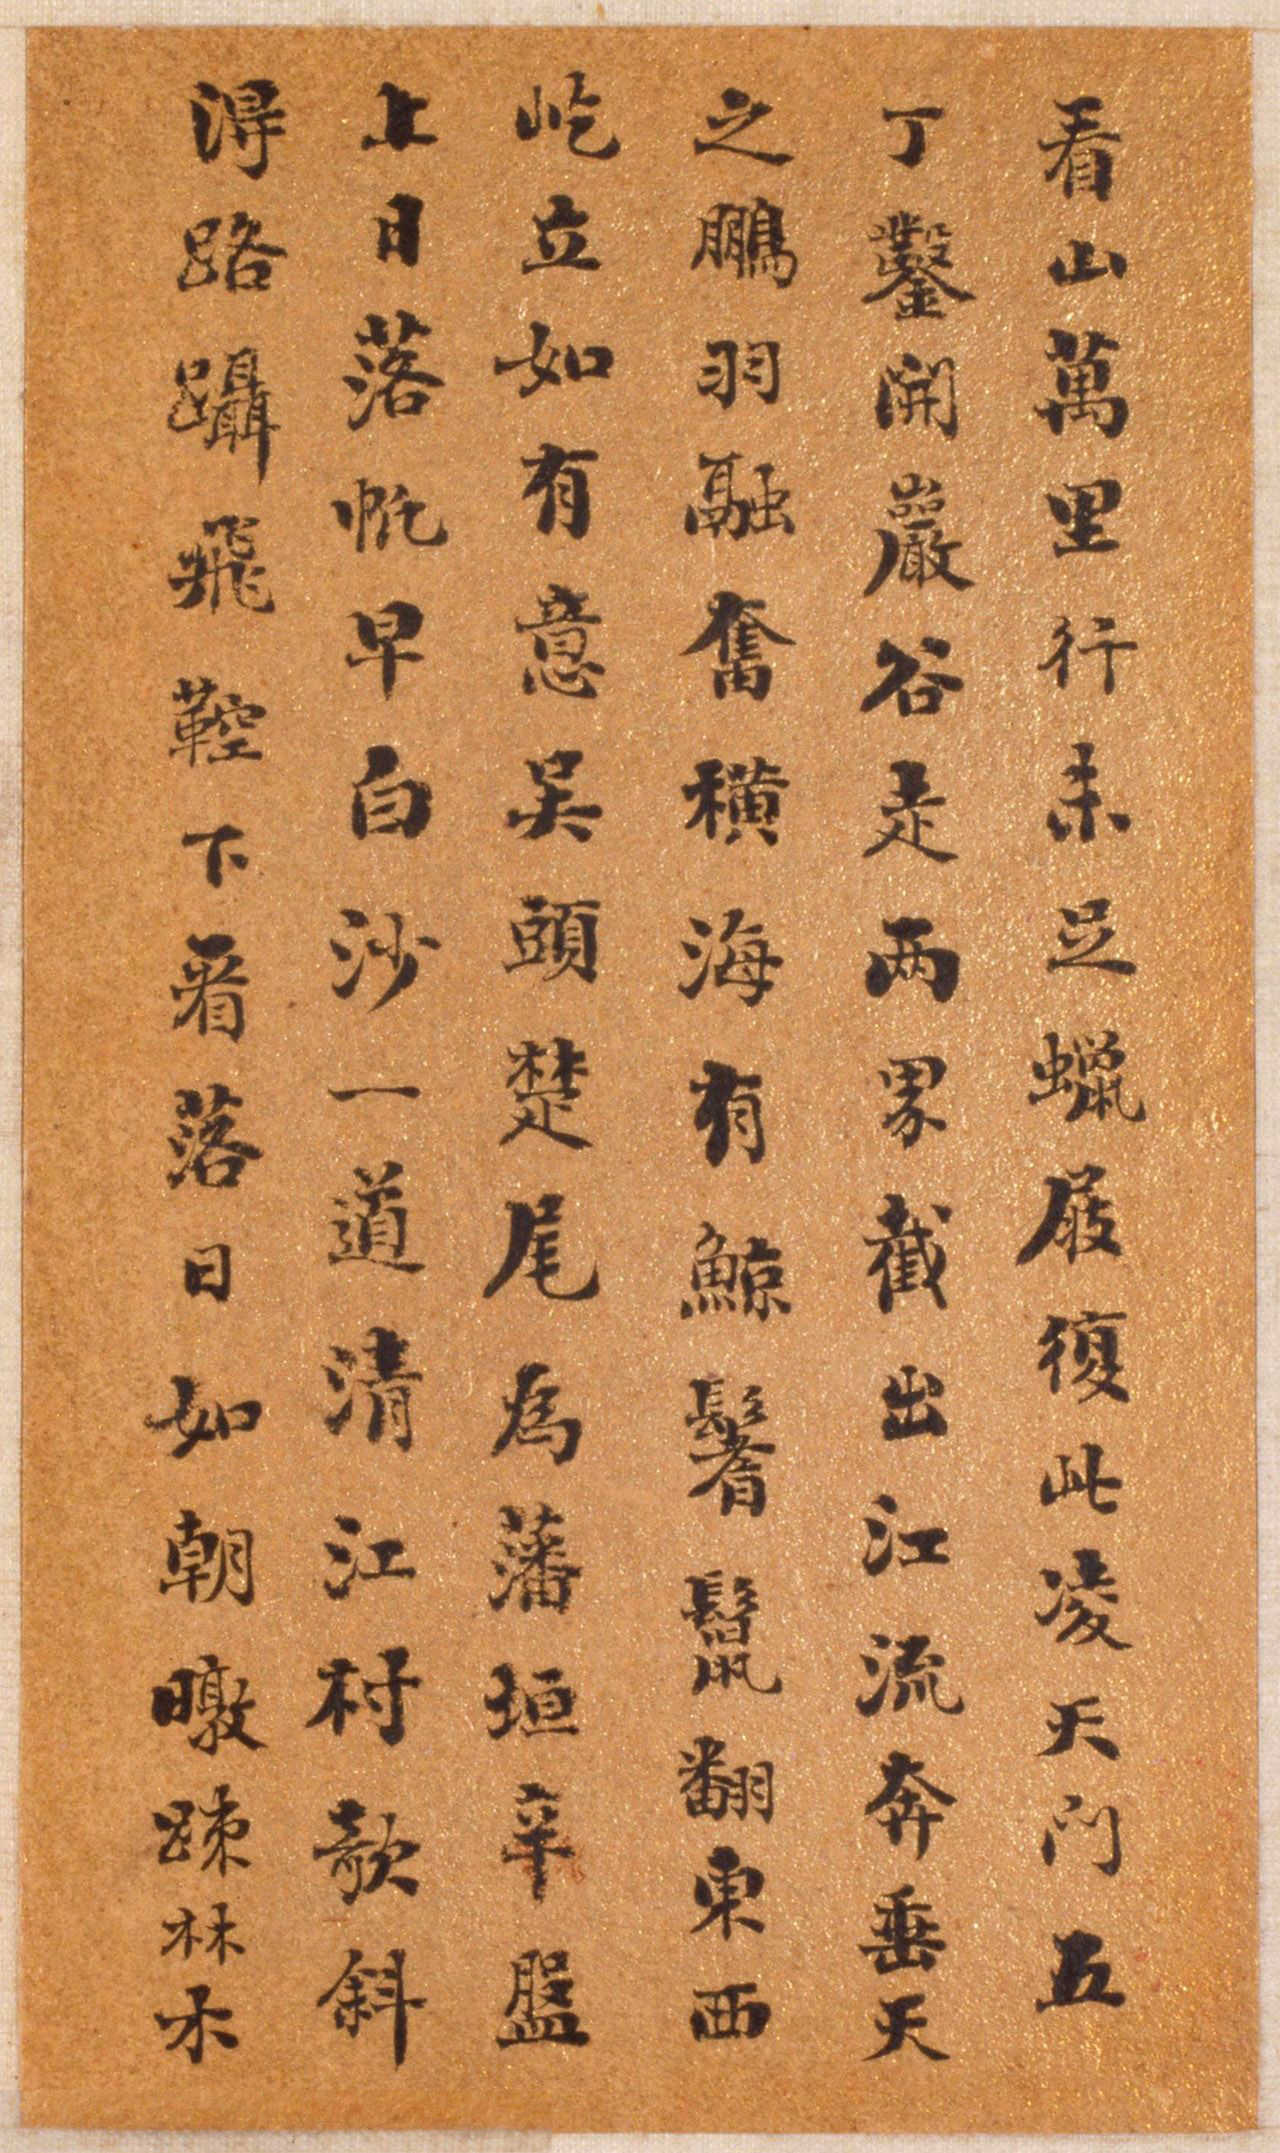 看山萬里行未足蠟屐復此凌天門五
丁鑿開巖谷走两界截出江流奔垂天
之鵬羽融奮橫海有鯨鬐鬣翻東西
屹立如有意吴頭楚尾為藩垣辛盤
上日落帆早白沙一道清江村欹斜
淂路躡飛鞚下看落日如朝暾踈林木